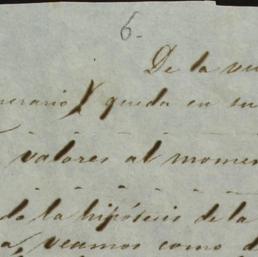 6.
De la
queda en su
valores al momen
do la hipótesis de la
veamos como d